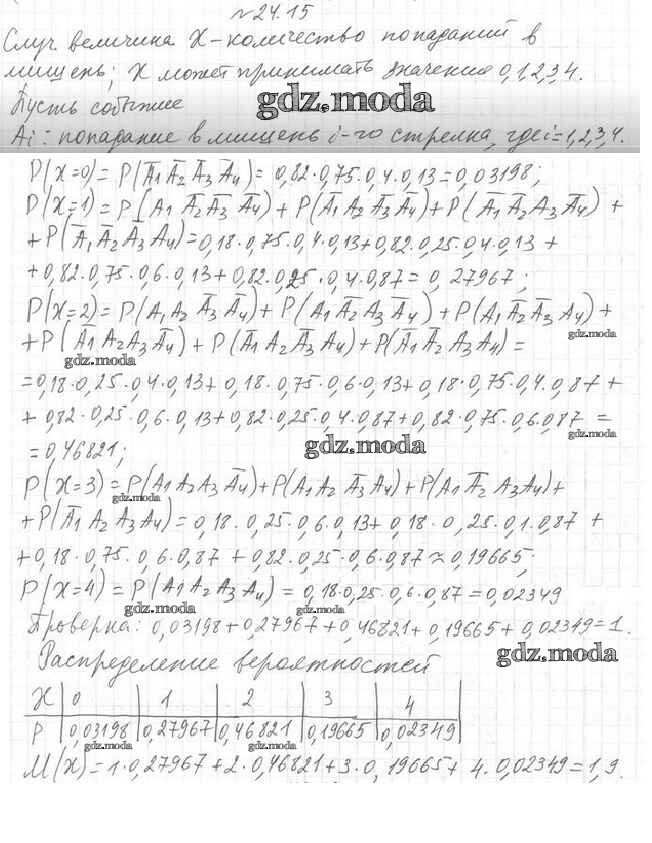 №24.15
Случ величина X - количество попаданий в
мишень; X может принимать значения 0,1,2,3,4.
Пусть событие
gdz.moda
Ai: попадание в мишень i-го стрелка, где i=1,2,3,4.
P(X=0)=P(A̅1 A̅2 A̅3 A̅4)=0,82·0,75·0,4·0,13=0,03198;
P(X=1)=P(A1 A̅2 A̅3 A̅4)+P(A̅1 A2 A̅3 A̅4)+P(A̅1 A̅2 A3 A̅4)+
+P(A̅1 A̅2 A̅3 A4)=0,18·0,75·0,4·0,13+0,82·0,25·0,4·0,13+
+0,82·0,75·0,6·0,13+0,82·0,25·0,4·0,87=0,27967;
P(X=2)=P(A1 A2 A̅3 A̅4)+P(A1 A̅2 A3 A̅4)+P(A1 A̅2 A̅3 A4)+
gdz.moda
+P(A̅1 A2 A3 A̅4)+P(A̅1 A2 A̅3 A4)+P(A̅1 A̅2 A3 A4)=
gdz.moda
=0,18·0,25·0,4·0,13+0,18·0,75·0,6·0,13+0,18·0,75·0,4·0,87+
+0,82·0,25·0,6·0,13+0,82·0,25·0,4·0,87+0,82·0,75·0,6·0,87=
gdz.moda
=0,46821;
gdz.moda
P(X=3)=P(A1 A2 A3 A̅4)+P(A1 A2 A̅3 A4)+P(A1 A̅2 A3 A4)+
gdz.moda
+P(A̅1 A2 A3 A4)=0,18·0,25·0,6·0,13+0,18·0,25·0,1·0,87+
+0,18·0,75·0,6·0,87+0,82·0,25·0,6·0,87≈0,19665;
P(X=4)=P(A1 A2 A3 A4)=0,18·0,25·0,6·0,87=0,02349
gdz.moda gdz.moda
Проверка: 0,03198+0,27967+0,46821+0,19665+0,02349=1.
gdz.moda
Распределение вероятностей
X 0 1 2 3 4
P 0,03198 0,27967 0,46821 0,19665 0,02349
gdz.moda gdz.moda gdz.moda
M(X)=1·0,27967+2·0,46821+3·0,19665+4·0,02349=1,9.